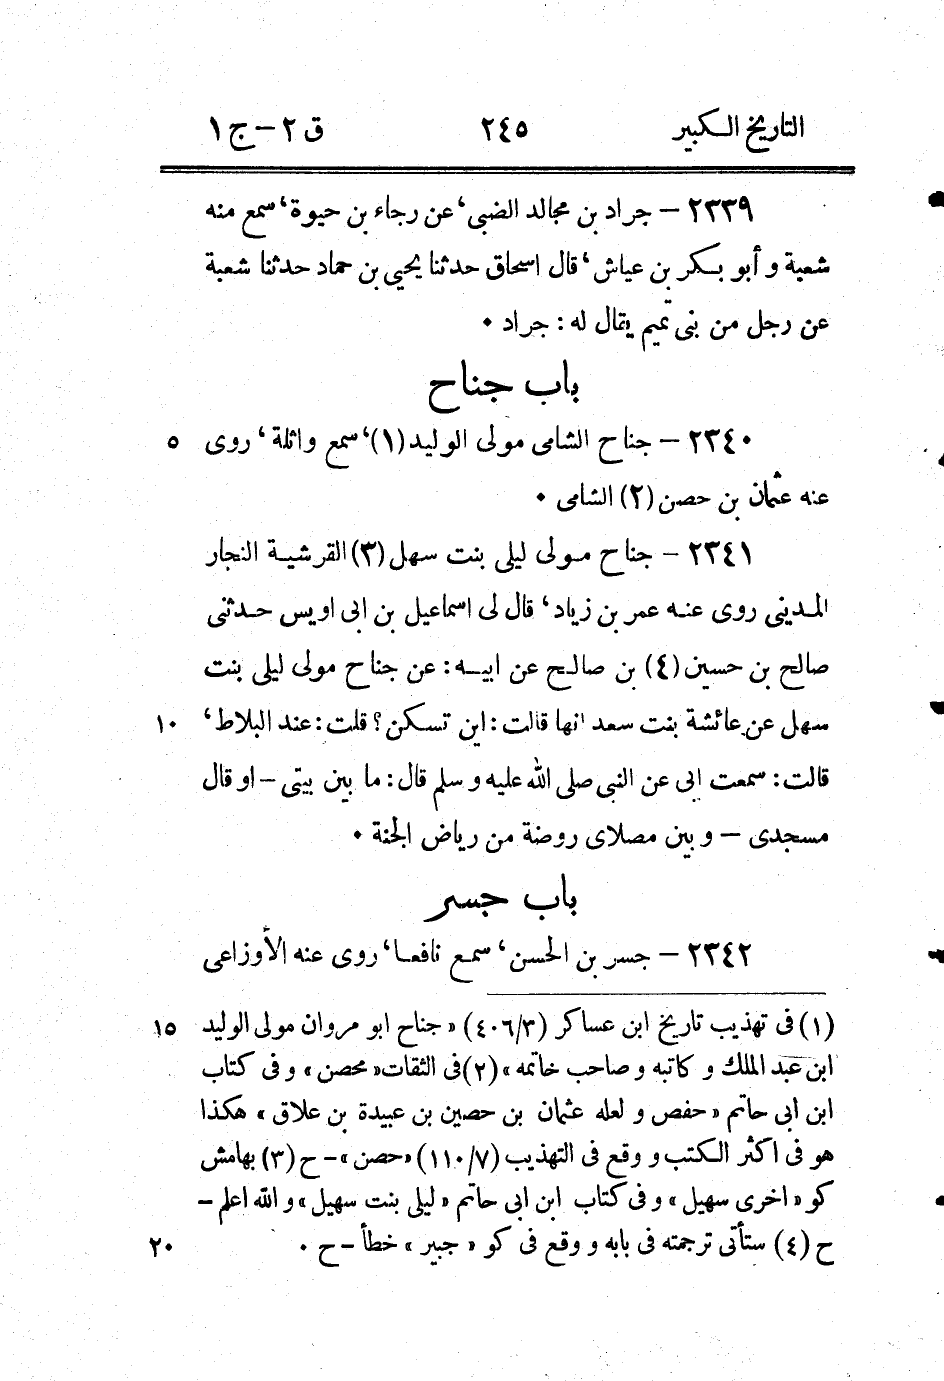 التاريخ الكبير ٢٤٥ ق ٢ - ج ١
٢٣٣٩ – جراد بن مجالد الضبى، عن رجاء بن حيوة، سمع منه
شعبة و أبو بكر بن عياش، قال اسحاق حدثنا يحيى بن حماد حدثنا شعبة
عن رجل من بنى تميم يقال له : جراد ٠
باب جناح
٢٣٤٠ – جناح الشامى مولى الوليد (١)، سمع واثلة، روى ٥
عنه عثمان بن حصن (٢) الشامى ٠
٢٣٤١ – جناح مولى ليلى بنت سهل (٣) القرشية النجار
المدينى روى عنه عمر بن زياد، قال لى اسماعيل بن ابى اويس حدثنى
صالح بن حسين (٤) بن صالح عن ابيه : عن جناح مولى ليلى بنت
سهل عن عائشة بنت سعد انها قالت : اين تسكن ؟ قلت : عند البلاط، ١٠
قالت : سمعت ابى عن النبى صلى الله عليه و سلم قال : ما بين بيتى – او قال
مسجدى – و بين مصلاى روضة من رياض الجنة ٠
باب جسر
٢٣٤٢ – جسر بن الحسن، سمع نافعا، روى عنه الأوزاعى
(١) فى تهذيب تاريخ ابن عساكر (٤٠٦/٣) « جناح ابو مروان مولى الوليد ١٥
ابن عبد الملك و كاتبه و صاحب خاتمه » (٢) فى الثقات « محصن » و فى كتاب
ابن ابى حاتم « حفص و لعله عثمان بن حصين بن عبيدة بن علاق » هكذا
هو فى اكثر الكتب و وقع فى التهذيب (١١٠/٧) « حصن » – ح (٣) بهامش
كو « اخرى سهيل » و فى كتاب ابن ابى حاتم « ليلى بنت سهيل » و الله اعلم –
ح (٤) ستأتى ترجمته فى بابه و وقع فى كو « جبير » خطأ – ح ٠ ٢٠